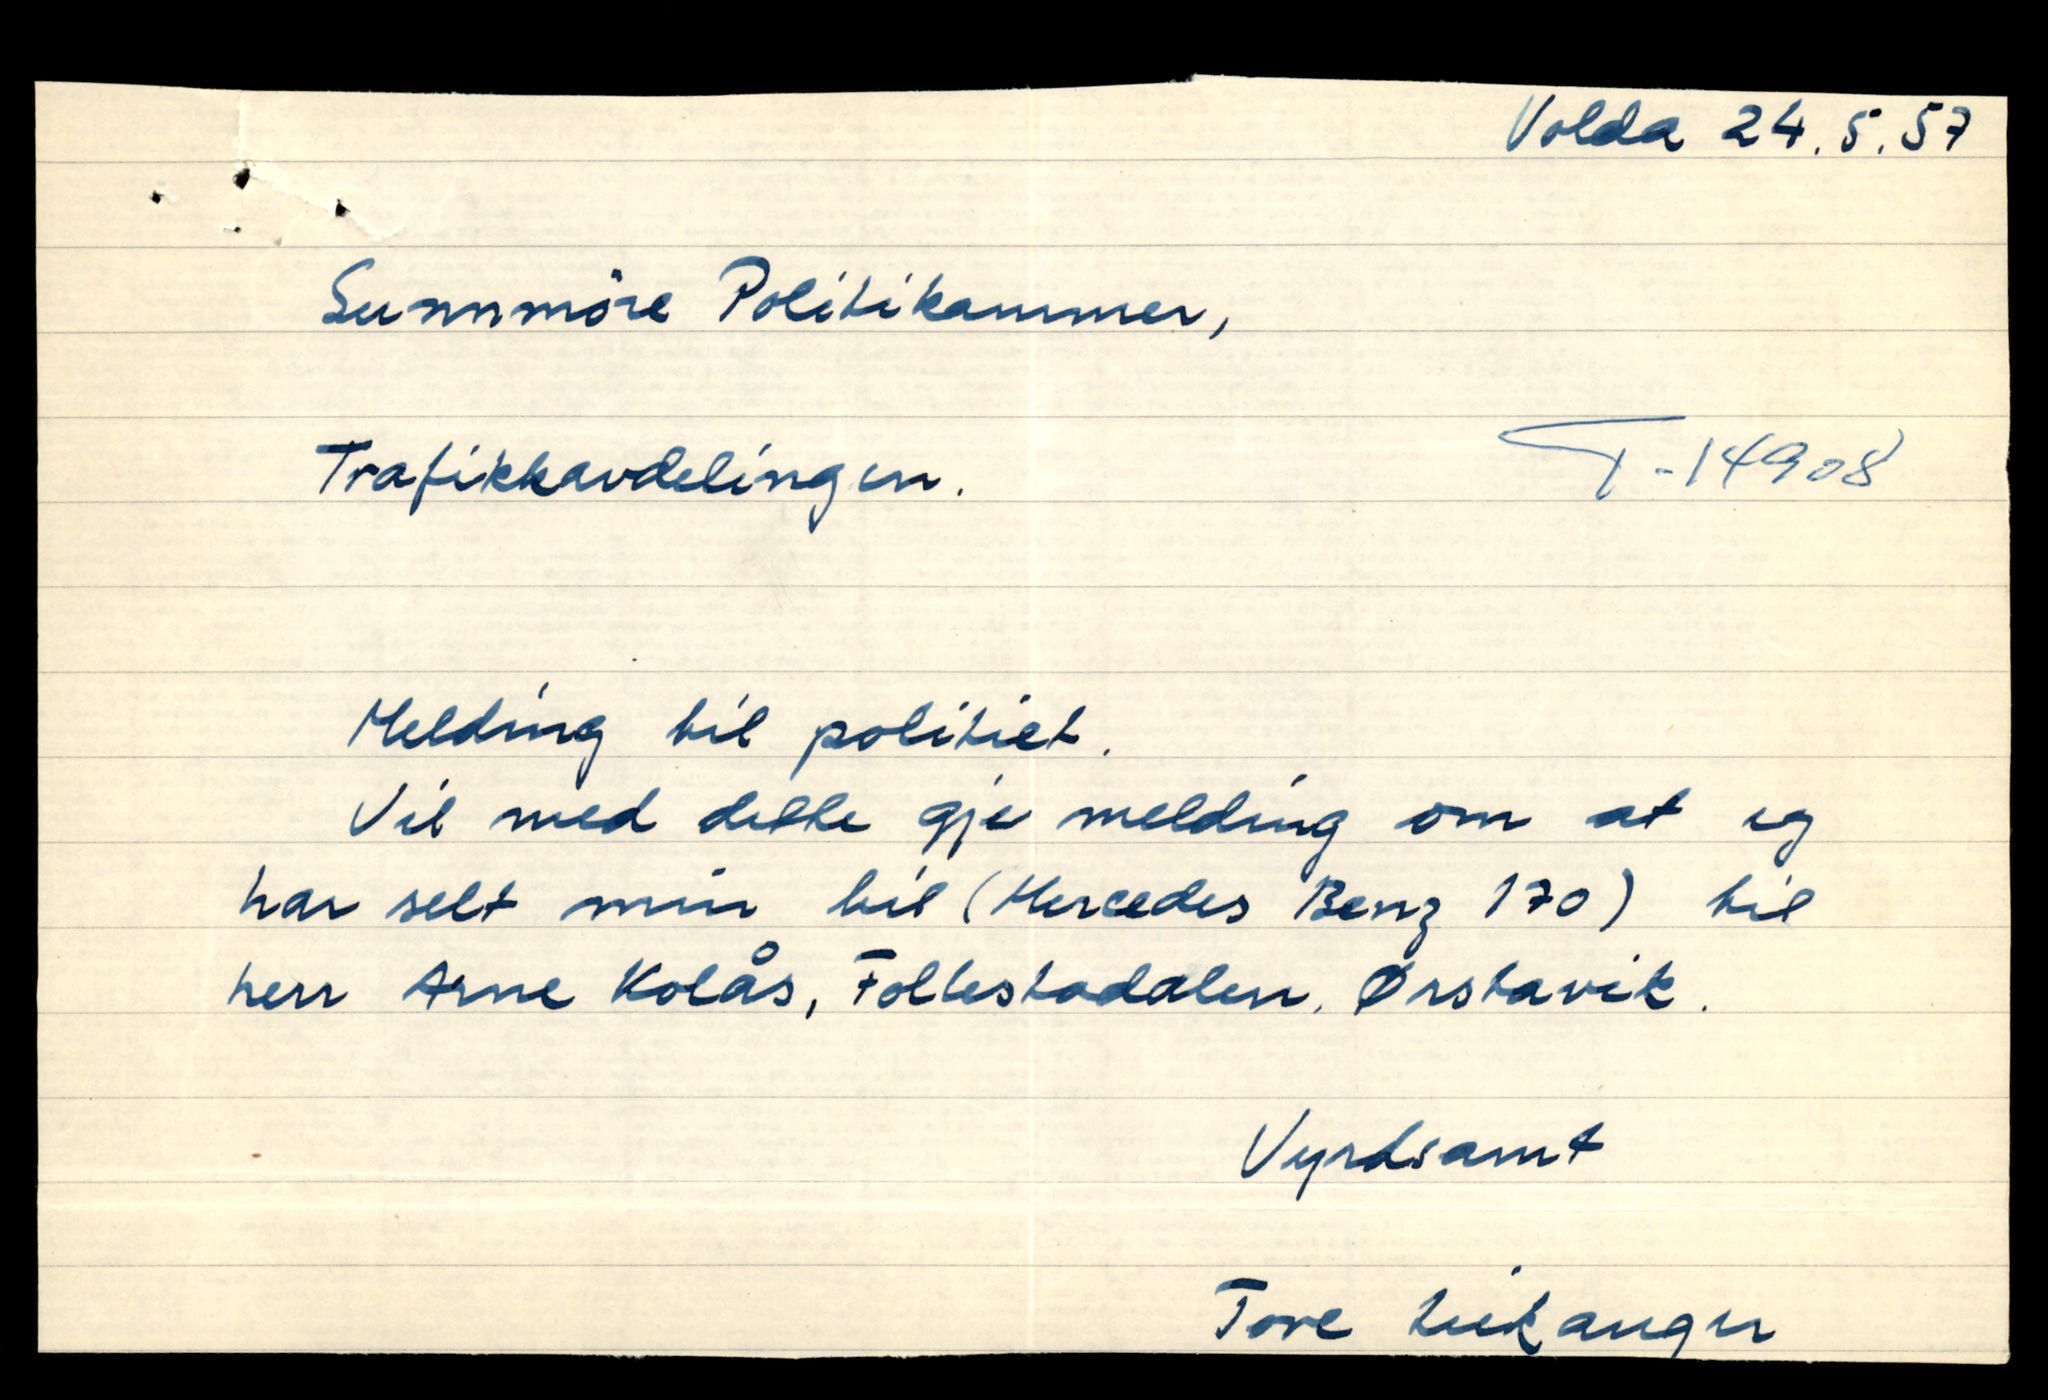 Volda 24.5.57
Sunnmöre Politikammer,
Trafikkavdelingen.
T-14908
Melding til politiet.
Vil med dette gje melding om at eg
har selt min bil (Mercedes Benz 170) til
herr Arne Kolås, Folkestaddalen. Ørstavik.
Vyrdsamt
Tore Leikanger